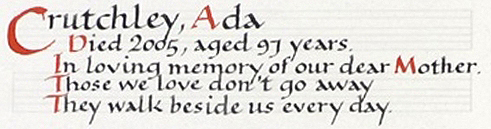 Crutchley, Ada
Died 2005, aged 97 years.
In loving memory of our dear Mother.
Those we love don't go away
They walk beside us every day.